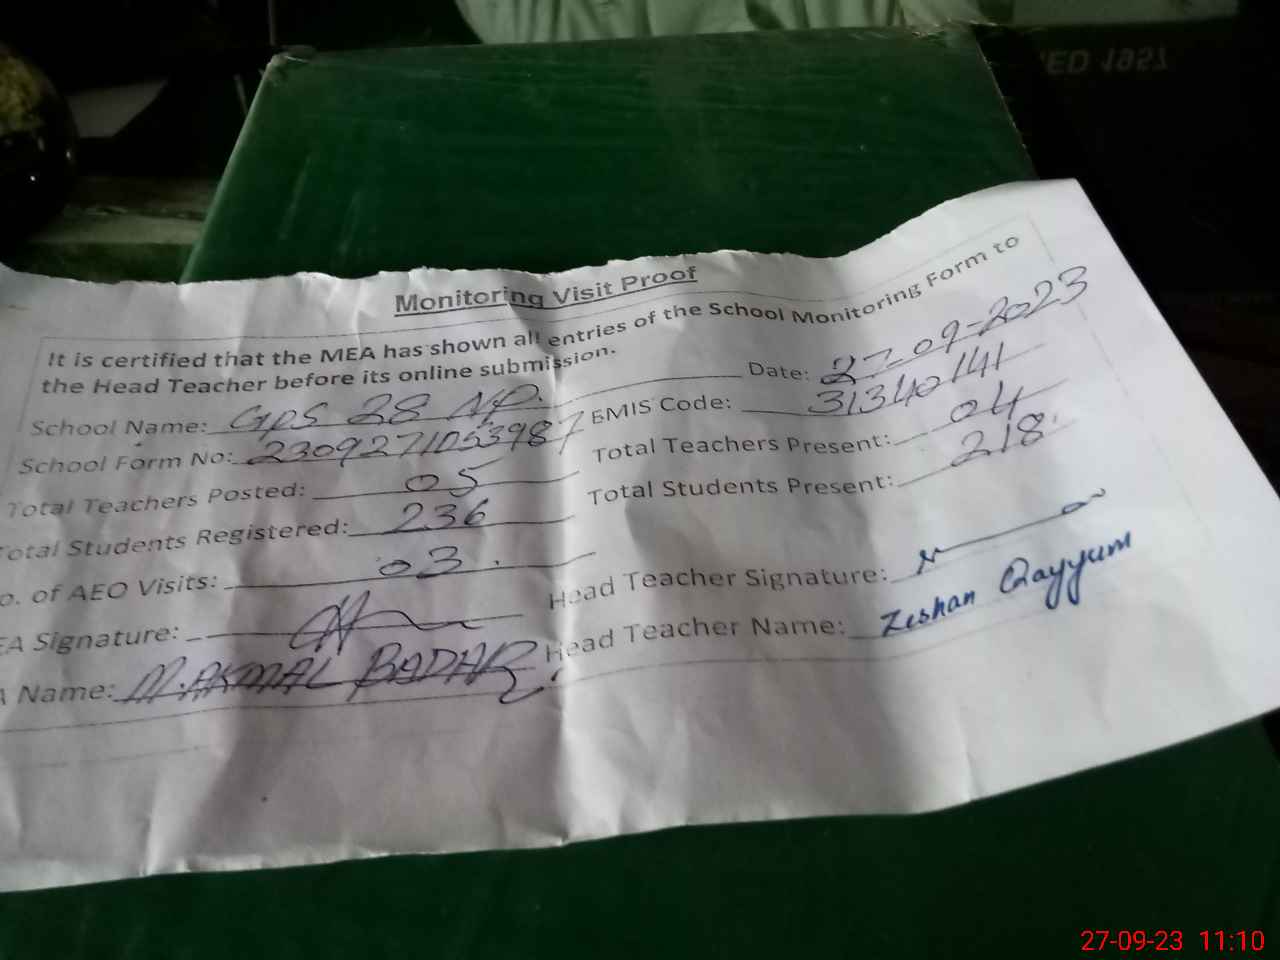 ED 1957
Monitoring Visit Proof
It is certified that the MEA has shown all entries of the School Monitoring Form to
the Head Teacher before its online submission.
Date: 27-09-2023
School Name: GPS 28 NP.
EMIS Code: 31340141
School Form No: 2309271053987
Total Teachers Present: 04
Total Teachers Posted: 05
Total Students Present: 218
Total Students Registered: 236
o. of AEO Visits: 03.
Head Teacher Signature:
EA Signature:
Head Teacher Name: Zeshan Qayyum
A Name: M. AKMAL BADAR
27-09-23 11:10